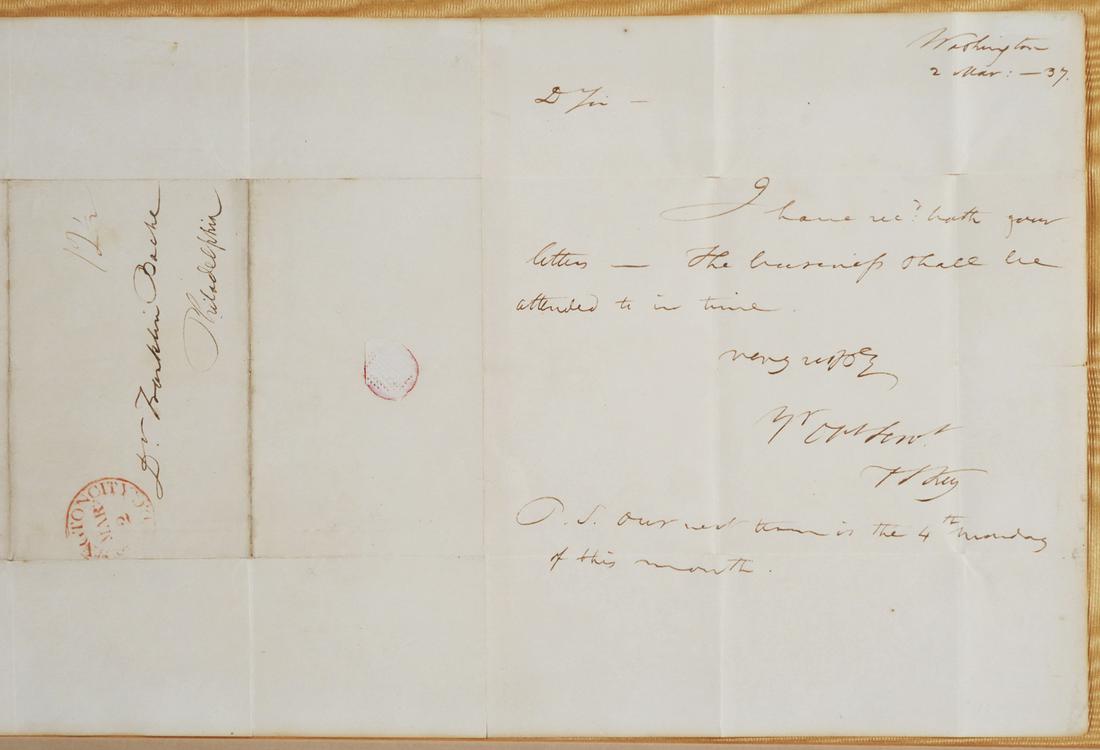 Washington
2 Mar: — 37.
D Sir —
I have rec.d both your
letters — The business shall be
attended to in time.
very resply
Yr Obt Servt
F S Key
P. S. Our next term is the 4th monday
of this month.
12 1/2
Dr. Franklin Bache
Philadelphia
GTON CITY D.
MAR
2